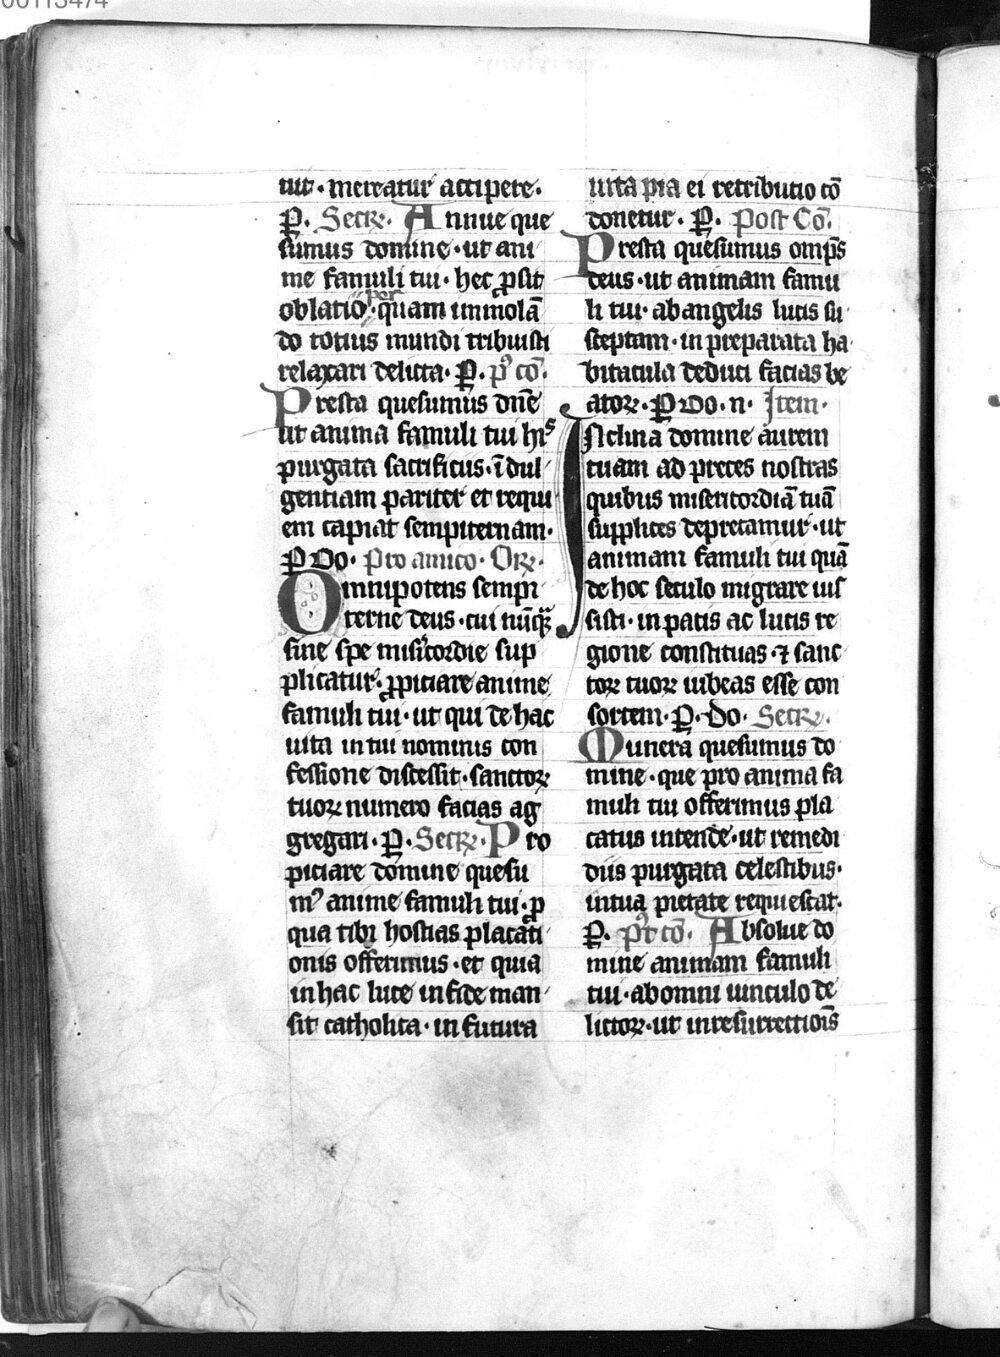 00113474
tur · mereatur accipere ·
P. Secꝝ. Annue que
sumus domine · ut ani
me famuli tui · hec ꝓsit
oblatio · per quam immolā
do totius mundi tribuisti
relaxari delicta · P. pꝰ cō.
Presta quesumus dn̄e
ut anima famuli tui hiˢ
purgata sacrificiis · īdul
gentiam pariter et requi
em capiat sempiternam ·
P Do · Pro amico · Orꝝ ·
Omnipotens sempi
terne deus · cui nūqꝫ
sine spe misicordie sup
plicatur · ꝓpiciare anime
famuli tui · ut qui de hac
uita in tui nominis con
fessione discessit · sanctoꝝ
tuoꝝ numero facias ag
gregari · P. Secꝝ. Pro
piciare domine quesu
mꝰ anime famuli tui · ꝓ
qua tibi hostias placati
onis offerimus · et quia
in hac luce in fide man
sit catholica · in futura
uita pia ei retributio cō
donetur · P. Post Cō.
Presta quesumus omp̄s
deus · ut animam famu
li tui · ab angelis lucis su
sceptam · in preparata ha
bitacula deduci facias be
atoꝝ · P Do · n · Item ·
Inclina domine aurem
tuam ad preces nostras
quibus misericordiā tuā
supplices deprecamur · ut
animam famuli tui quā
de hoc seculo migrare ius
sisti · in pacis ac lucis re
gione constituas · ⁊ sanc
toꝝ tuoꝝ iubeas esse con
sortem · P. Do. Secꝝ.
Munera quesumus do
mine · que pro anima fa
muli tui offerimus pla
catus intende · ut remedi
diis purgata celestibus ·
in tua pietate requiescat ·
P. pꝰt cō. Absolue do
mine animam famuli
tui · ab omni uinculo de
lictoꝝ · ut in resurrectiōis